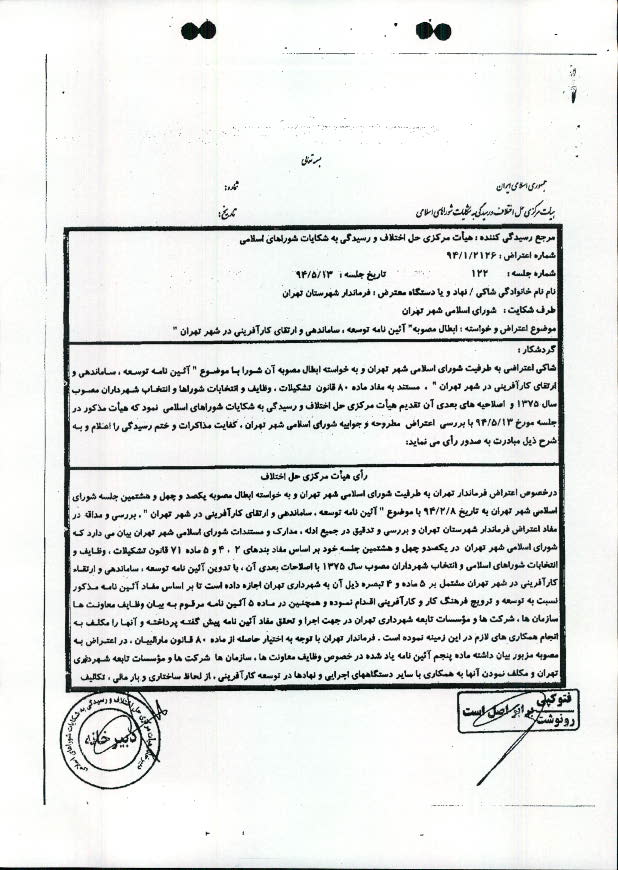 بسمه تعالی
جمهوری اسلامی ایران
شماره:
هیأت مرکزی حل اختلاف و رسیدگی به شکایات شوراهای اسلامی
تاریخ:
مرجع رسیدگی کننده : هیأت مرکزی حل اختلاف و رسیدگی به شکایات شوراهای اسلامی
شماره اعتراض : ۹۴/۱/۲۱۲۶
شماره جلسه : ۱۲۲ تاریخ جلسه : ۹۴/۵/۱۳
نام نام خانوادگی شاکی / نهاد و یا دستگاه معترض : فرماندار شهرستان تهران
طرف شکایت : شورای اسلامی شهر تهران
موضوع اعتراض و خواسته : ابطال مصوبه" آئین نامه توسعه ، ساماندهی و ارتقای کارآفرینی در شهر تهران "
گردشکار :
شاکی اعتراضی به طرفیت شورای اسلامی شهر تهران و به خواسته ابطال مصوبه آن شورا با موضوع " آئین نامه توسعه ، ساماندهی و
ارتقای کارآفرینی در شهر تهران " . مستند به مفاد ماده ۸۰ قانون تشکیلات ، وظایف و انتخابات شوراها و انتخاب شهرداران مصوب
سال ۱۳۷۵ و اصلاحیه های بعدی آن تقدیم هیأت مرکزی حل اختلاف و رسیدگی به شکایات شوراهای اسلامی نمود که هیأت مذکور در
جلسه مورخ ۹۴/۵/۱۳ با بررسی اعتراض مطروحه و جوابیه شورای اسلامی شهر تهران ، کفایت مذاکرات و ختم رسیدگی را اعلام و به
شرح ذیل مبادرت به صدور رأی می نماید:
رأی هیأت مرکزی حل اختلاف
درخصوص اعتراض فرماندار تهران به طرفیت شورای اسلامی شهر تهران و به خواسته ابطال مصوبه یکصد و چهل و هشتمین جلسه شورای
اسلامی شهر تهران به تاریخ ۹۴/۲/۸ با موضوع " آئین نامه توسعه ، ساماندهی و ارتقای کارآفرینی در شهر تهران " ، بررسی و مداقه در
مفاد اعتراض فرماندار شهرستان تهران و بررسی و تدقیق در جمیع ادله ، مدارک و مستندات شورای اسلامی شهر تهران بیان می دارد که
شورای اسلامی شهر تهران در یکصدو چهل و هشتمین جلسه خود بر اساس مفاد بندهای ۲ ، ۴ و ۵ ماده ۷۱ قانون تشکیلات ، وظایف و
انتخابات شوراهای اسلامی و انتخاب شهرداران مصوب سال ۱۳۷۵ با اصلاحات بعدی آن ، با تدوین آئین نامه توسعه ، ساماندهی و ارتقاء
کارآفرینی در شهر تهران مشتمل بر ۵ ماده و ۴ تبصره ذیل آن به شهرداری تهران اجازه داده است تا بر اساس مفاد آئین نامه مذکور
نسبت به توسعه و ترویج فرهنگ کار و کارآفرینی اقدام نموده و همچنین در ماده ۵ آئین نامه مرقوم به بیان وظایف معاونت ها
سازمان ها ، شرکت ها و مؤسسات تابعه شهرداری تهران در جهت اجرا و تحقق مفاد آئین نامه پیش گفته پرداخته و آنها را مکلف به
انجام همکاری های لازم در این زمینه نموده است . فرماندار تهران با توجه به اختیار حاصله از ماده ۸۰ قانون مارالبیان ، در اعتراض به
مصوبه مزبور بیان داشته ماده پنجم آئین نامه یاد شده در خصوص وظایف معاونت ها ، سازمان ها شرکت ها و مؤسسات تابعه شهرداری
تهران و مکلف نمودن آنها به همکاری با سایر دستگاههای اجرایی و نهادها در توسعه کارآفرینی ، از لحاظ ساختاری و بار مالی ، تکالیف
فتوکپی
رونوشت برابر اصل است
دبیرخانه